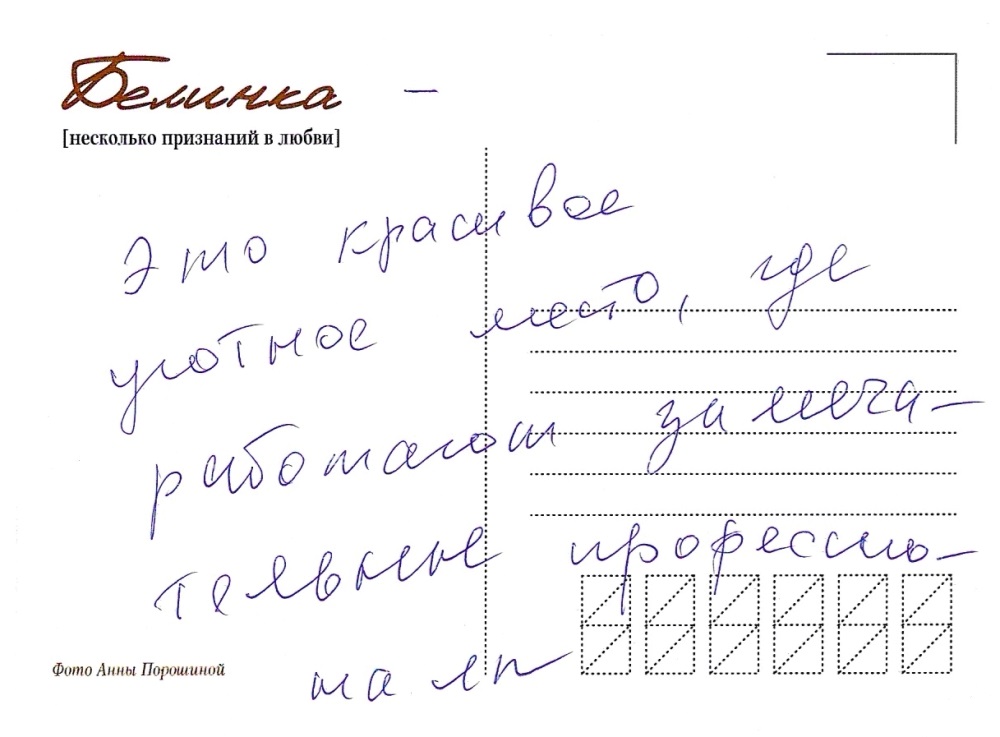 Белинка —
[несколько признаний в любви]
Это красивое
уютное место, где
работают замеча-
тельные профессио-
налы
Фото Анны Порошиной